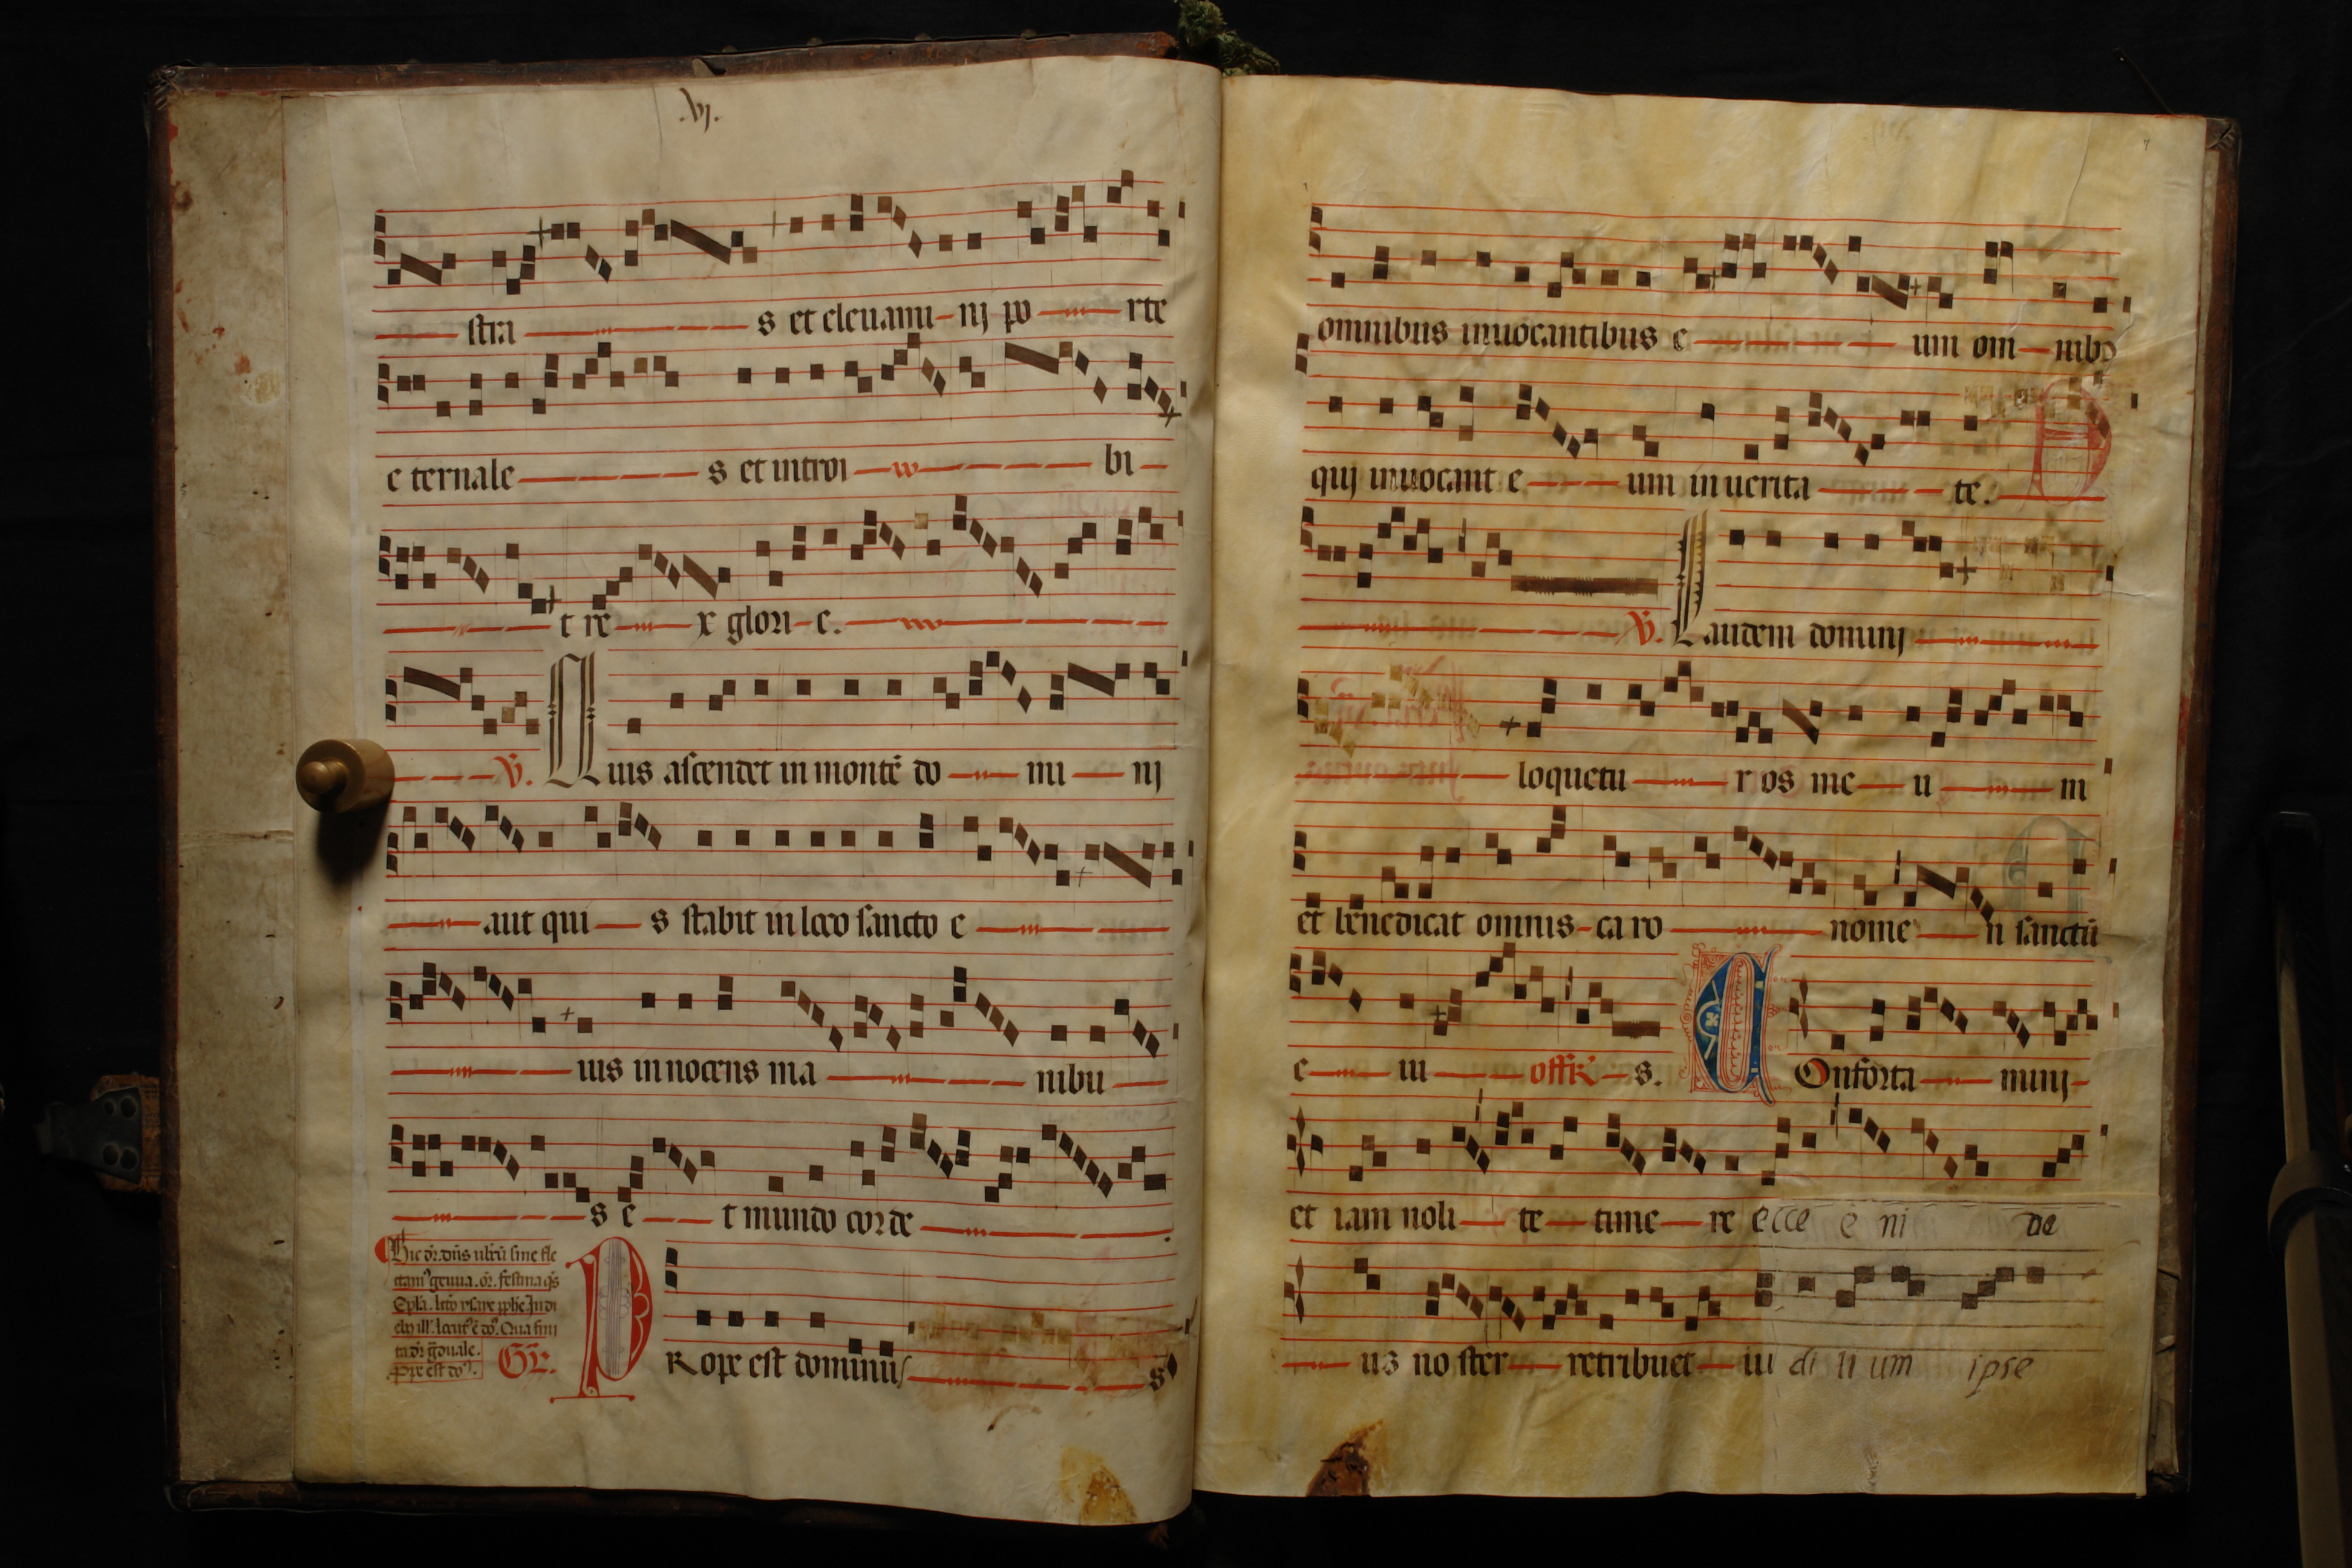 .vj.
stra s et eleuami-nj po rte
e ternale s et introi bi
t re x glori-e.
v̄. Quis ascendet in montē do mi nj
aut qui s stabit in loco sancto e
ius innocens ma nibu
s e t mundo corde
Gr̄. PRope est dominus s
omnibus inuocantibus e um om nibꝰ
quj inuocant e um in uerita te.
v̄. Laudem dominj
loquetu r os me u m
et benedicat omnis caro nome n sanctū
e iu offR̄ s. COnforta minj
et iam noli te time re ecce e ni de
us no ster retribuet iu di ti um ipse